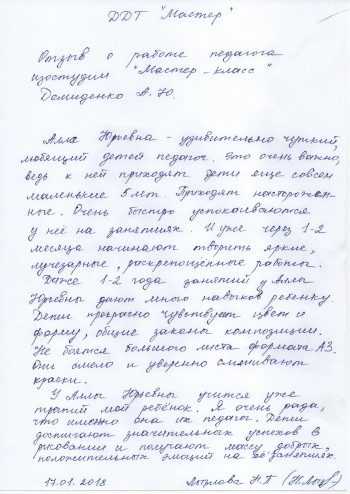 ДДТ "Мастер"
Отзыв о работе педагога
изостудии "Мастер-класс"
Демиденко А.Ю.
Алла Юрьевна - удивительно чуткий,
любящий детей педагог. Это очень важно,
ведь к ней приходят дети еще совсем
маленькие 5 лет. Приходят насторожен-
ные. Очень быстро успокаиваются
у неё на занятиях. И уже через 1-2
месяца начинают творить яркие,
лучезарные, раскрепощённые работы.
Даже 1-2 года занятий у Аллы
Юрьевны дают много навыков ребенку.
Дети прекрасно чувствуют цвет и
форму, общие законы композиции.
Не боятся большого листа формата А3.
Они смело и уверенно смешивают
краски.
У Аллы Юрьевны учится уже
третий мой ребёнок. Я очень рада,
что именно она их педагог. Дети
достигают значительных успехов в
рисовании и получают массу добрых,
положительных эмоций на её занятиях.
17.01.2018 Н.П.